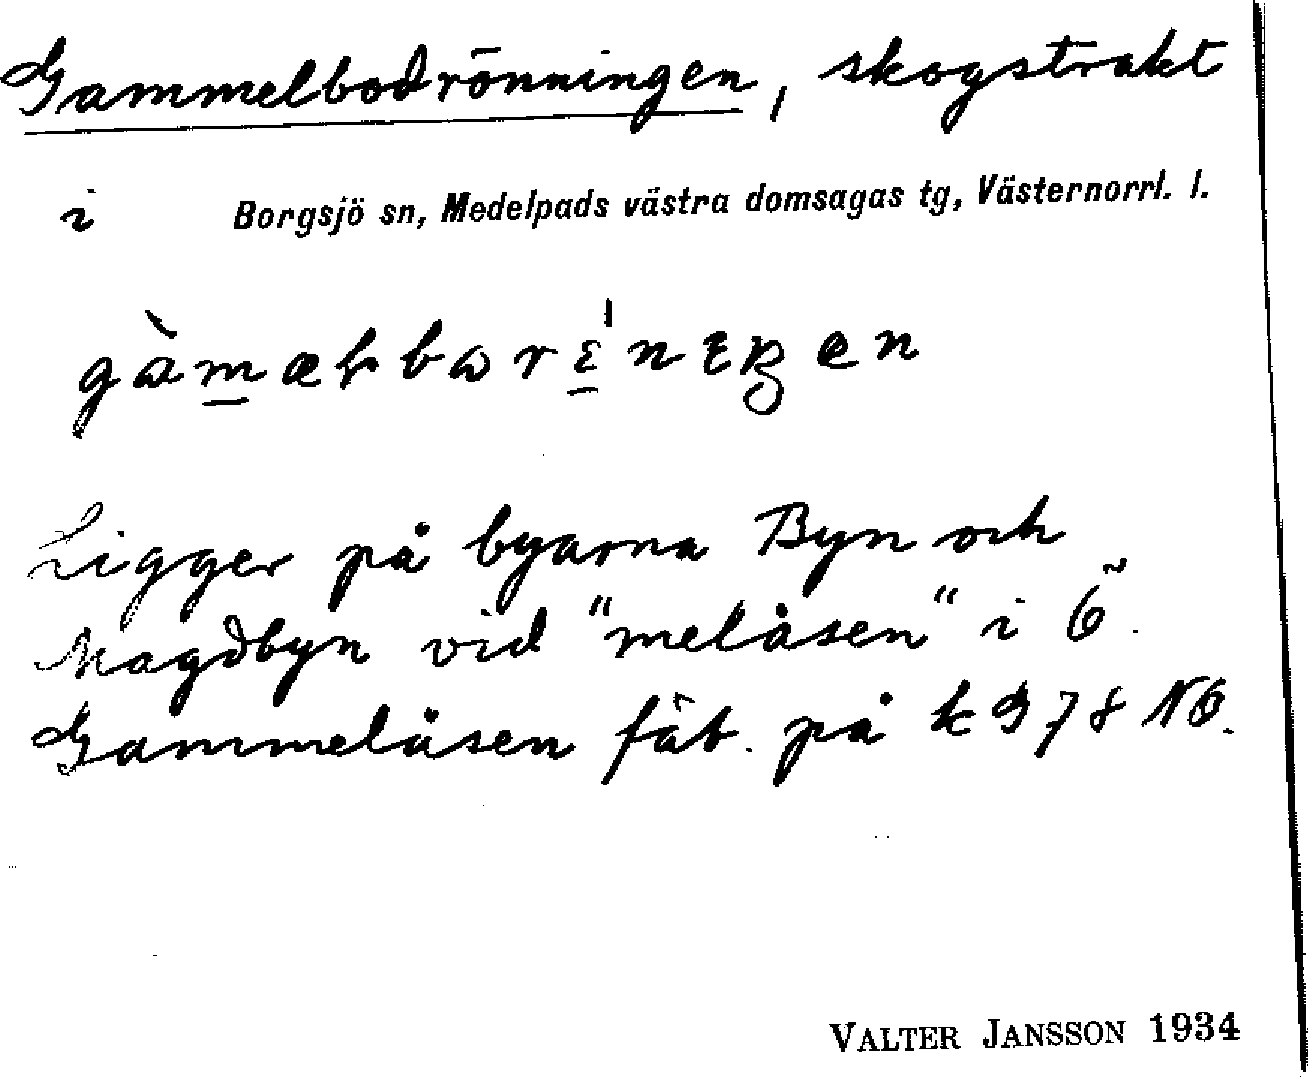 Gammelbodrönningen, skogstrakt
i Borgsjö sn, Medelpads västra domsagas tg, Västernorrl. l.
Ligger på byarna Byn och
Magdbyn vid "melåsen" i Ö.
Gammelåsen fäb. på k 978 NÖ.
VALTER JANSSON 1934